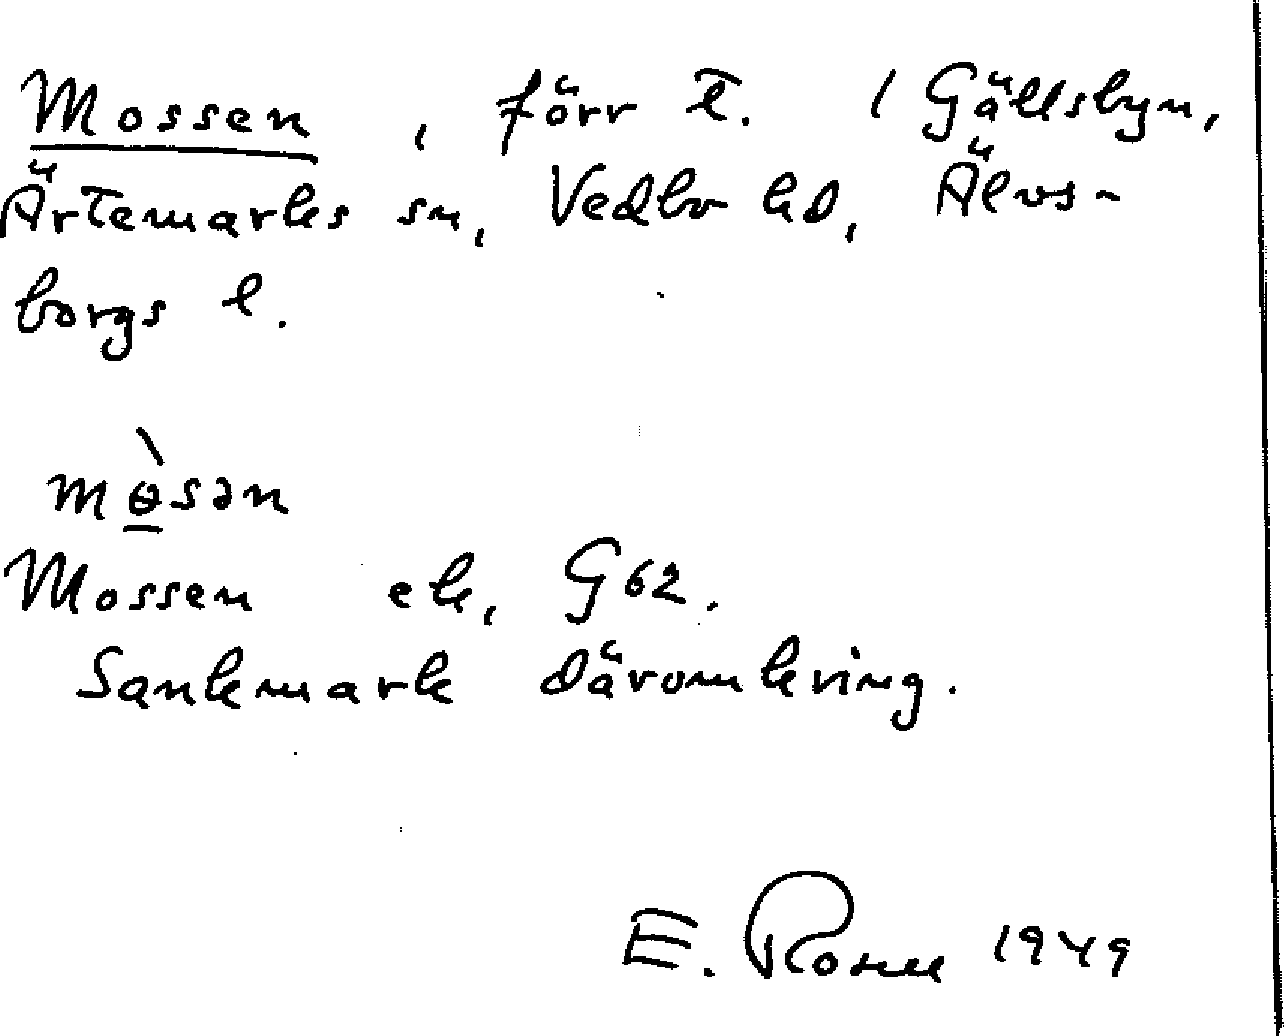 Mossen, förr t. i Gällsbyn,
Ärtemarks sn, Vedbo hd, Älvs-
borgs l.
mɵ̀sən
Mossen ek, G62.
Sankmark däromkring.
E. Rosell 1949